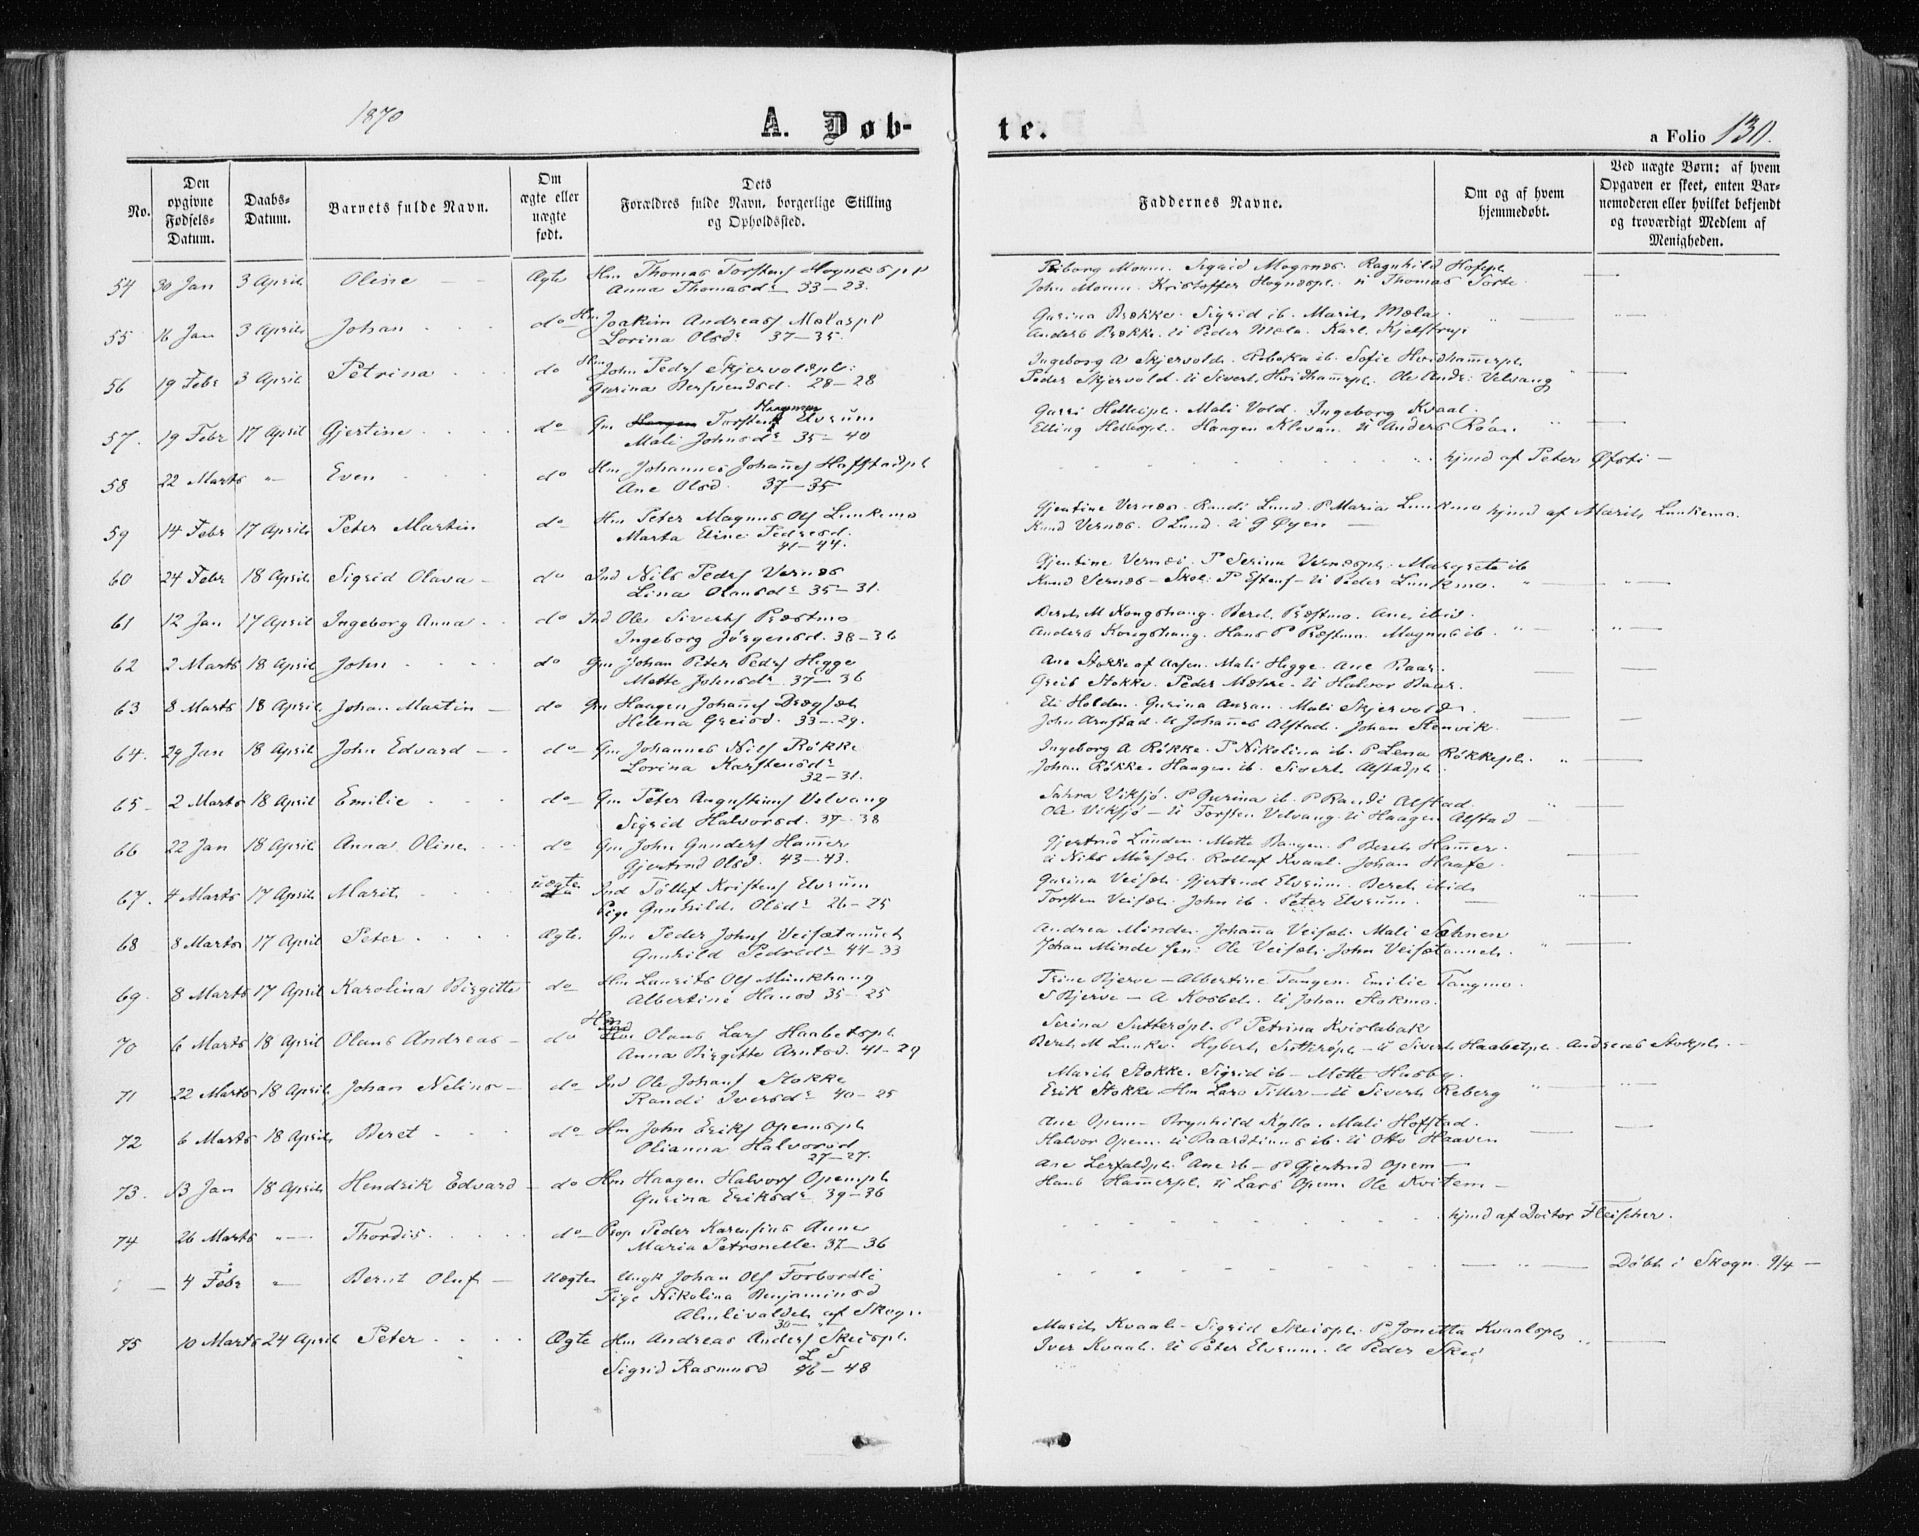 1870
A. Døb-
te.
a Folio 130.
No.
Den opgivne Fødsels-Datum.
Daabs-Datum.
Barnets fulde Navn.
Om ægte eller uægte født.
Dets Forældres fulde Navn, borgerlige Stilling og Opholdssted.
Faddernes Navne.
Om og af hvem hjemmedøbt.
Ved uægte Børn: af hvem Opgaven er skeet, enten Barnemoderen eller hvilket bekjendt og troværdigt Medlem af Menigheden.
54 30 Jan 3 April Oline Ægte Hm Thomas Torstens Hognespl
Anna Thomasdr 53-23.
John Moum. Kristoffer Hognespl. U Thomas
55 16 Jan 3 April Johan do Hm Joakim Andreass Mælaspl
Lorina Olsdr 37-35.
Gurina Brekke. Sigrid ib. Marit Mæla
Anders Brække. U Peder Mæla. Karl Kjelstrup
56 19 Febr 3 April Petrina do Hm John Peders Skjervoldspl.
Gurina Bersvendsd. 28-28
Ingeborg A Skjervold. Rebeka ib. Sofie Hvidhammerpl.
Peder Skjervold. U Sivert Hvidhammerpl. Ole Andr. Velvang
57. 19 Febr 17 April Gjertine do Gm Torsten Haagensen Elvrum
Mali Johnsdr 35-40
Gurri Hellespl. Mali Vold. Ingeborg Kvaal.
Elling Hellespl. Haagen Klevan. U Anders Röan
58 22 Marts " Even do Hm Johannes Johans Hoffstadpl
Ane Olsd. 37-35
hjmd af Peter Øfsti -
59 14 Febr 17 April Peter Martin do Hm Peter Magnus Ols Lunkemo
Marta Eline Pedersd.
41-44.
Gjertine Vernes. Randi Lund. P Maria Lunkmo hjmd af Marit Lunkemo.
Knud Vernes. O Lund. U G Öyen -
60 24 Febr 18 April Sigrid Olava do Ind Nils Peders Vernes
Lina Olausdr 35-31.
Gjertine Vernes. P Serina Vernespl. Margreta ib
Knud Vernes - Skol. P Estens - U Peder Lunkmo.
61 12 Jan 17 April Ingeborg Anna do Ind Ole Siverts Præstmo
Ingeborg Jörgensd. 38-36
Berit M Kongshaug. Berit Præstmo. Ane ibid.
Anders Kongshaug. Hans P Præstmo. Magnus ib.
62 2 Marts 18 April John do Gm Johan Peter Peders Hegge
Mette Johnsdr 37-36
Ane Stokke af Aasen. Mali Hegge. Ane Baar.
Greis Stokke. Peder Mæhre. U Halvor Baar.
63 8 Marts 18 April Johan Martin do Gm Haagen Johans Drægset
Helena Greisd. 33-29.
Eli Holden. Gurina Auran. Mali Skjervold
John Arnstad. U Johanes Alstad. Johan Stenvik
64. 29 Jan 18 April John Edvard do Gm Johannes Nils Rökke
Lorina Karstensdr
32-31.
Ingeborg A Rökke. P Nikolina ib. P Lena Rökkespl.
Johan Rökke. Haagen ib. Sivert Alstadpl.
65 2 Marts 18 April Emilie do Gm Peter Augustinus Velvang
Sigrid Halvorsd. 37-38
Sahra Viksjö. P Gurina ib. P Randi Alstad.
Ole Viksjö - U Torsten Velvang. U Haagen Alstad
66 22 Jan 18 April Anna Oline do Gm John Gunders Hammer
Gjertrud Olsd. 43-43.
Gjertrud Lunden. Mette Bangen. P Berit Hammer.
U Nils Mörset. Rolluf Kvaal. Johan Haafe.
67. 4 Marts 17 April Marit uægte Ind Töllef Kristens Elvrum
Pige Gunhild Olsdr 26-25
Gurina Veiset. Gjertrud Elvrum. Berit ibid
Torsten Veiset. John ib. Peter Elvrum.
68 8 Marts 17 April Peter Ægte Gm Peder Johns Veisetaunet
Gunhild Pedersdr 44-33
Andrea Minde. Johanna Veiset. Mali Sæhnen
Johan Minde sen. Ole Veiset. John Veisetaunet.
69. 8 Marts 17 April Karolina Birgitte do Hm Laurits Ols Munkhaug
Albertine Hansd 35-25
Trine Bjerve - Albertine Tangen. Emilie Tangmo.
S Bjerve - A Kosbet. U Johan Stokmo.
70 6 Marts 18 April Olaus Andreas do Olaus Lars Haabetspl
Anna Birgitte Arntsd. 41-29
Serina Sutteröpl. P Petrina Kvislabak
Berit M Lunke. Hybert Sutteröpl - U Sivert Haabetpl. Andreas Stokpl.
71 22 Marts 18 April Johan Nelius do Ind Ole Johans Stokke
Randi Iversdr 40-25
Marit Stokke. Sigrid ib - Mette Husby.
Erik Stokke Hm Lars Tiller - U Sivert Reberg
72 6 Marts 18 April Beret do Hm John Eriks Opemspl
Olianna Halvorsd
27-27.
Ane Opem - Brynhild Kyllo. Mali Hofstad.
Halvor Opem. U Baardtinus ib. U Otto Haaven
73. 13 Jan 18 April Hendrik Edvard do Hm Haagen Halvors Opempl
Gurina Eriksdr 39-36
Ane Lerfaldpl. P Ane ib - P Gjertrud Opem -
Hans Hammerpl. U Lars Opem. Ole Kvitem -
74 26 Marts " Thordis do Prop Peder Karensius Anne
Maria Petronelle 37-36
hjmd af Doktor Fleischer.
4 Febr " Bernt Oluf Uægte Ungk Johan Ols Forbordli
Pige Nikolina Benjaminsd
Almlivaldet af Skogn
30-
Döbt i Skogn 9/4 -
75 10 Marts 24 April Peter Ægte Hm Andreas Anders Skeispl.
Sigrid Rasmusd 46-48
Marit Kvaal - Sigrid Skeispl. P Jonetta Kvaalspl
Iver Kvaal. U Peter Elvrum. U Peder Skei